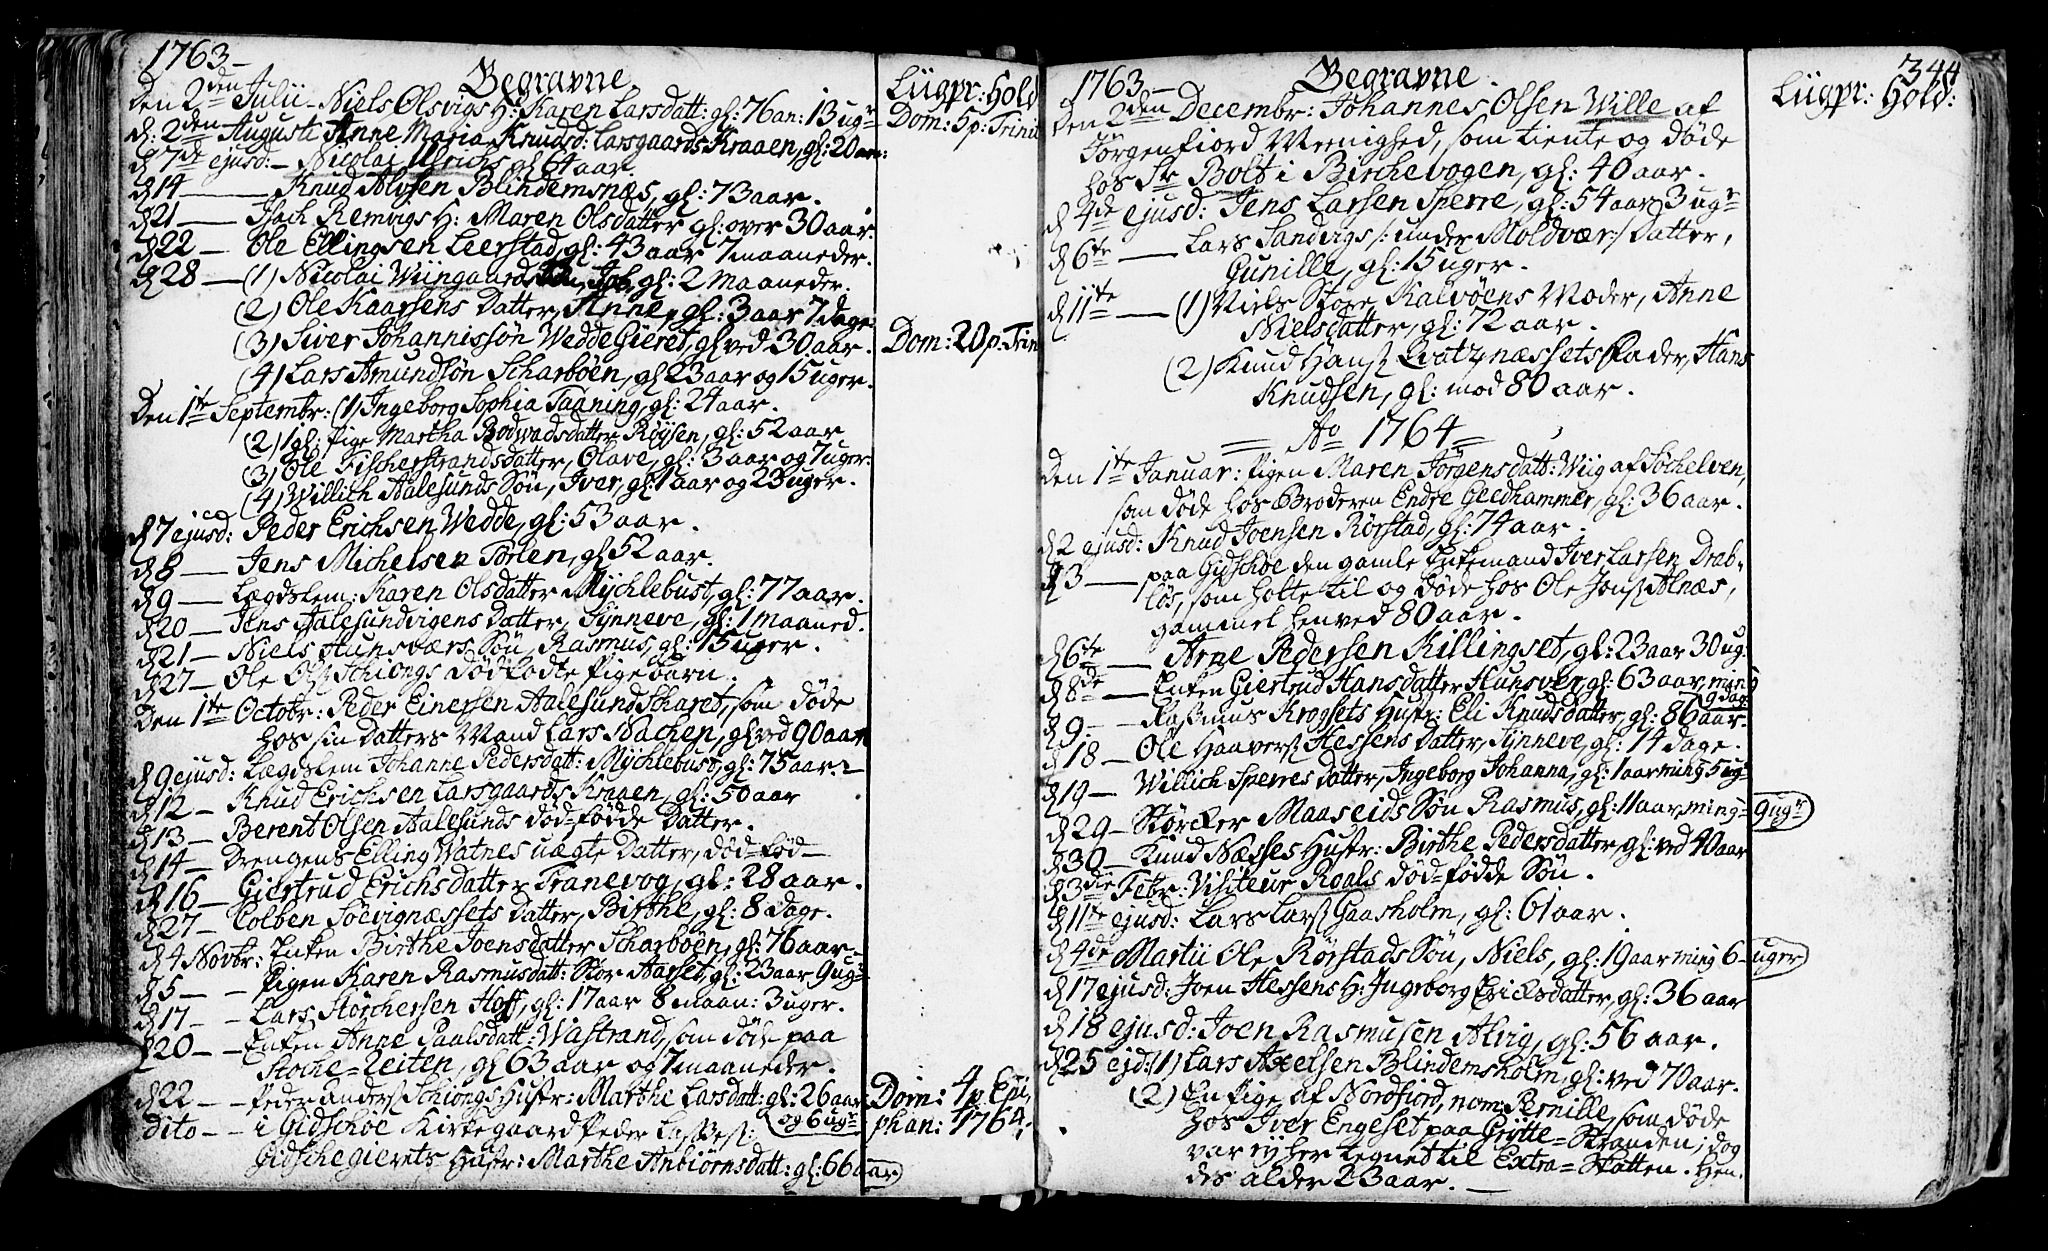 1763 –
Begravne
Liigpr: Hold
Den 2den Julii – Niels Olsvigs H: Karen Larsdatt: gl: 76 an: 13 ugr
Dom: 5 p: Trinit
d: 2den Augusti Anne Maria Knudsd: Larsgaards Kraaen, gl: 20 aar:
d 7de ejusd: – Nicolai Ulrichs gl 64 aar.
d 14 — Knud Alvsen Blindemsnæs, gl: 73 aar.
d 21 — Isach Remvigs H: Maren Olsdatter gl: over 30 aar.
d 22 — Ole Ellingsen Leerstad, gl: 43 aar 7 maaneder.
d 28 — (1) Nicolai Wiingaards gl: 2 Maaneder.
(2) Ole Kaarsens Datter, Anne, gl: 3 aar 7 dage
(3) Siver Johannissøn Wedde Gieret, gl ved 30 aar.
Dom: 20 p. Trin
(4) Lars Amundsøn Scharbøen, gl 23 aar og 15 uger.
Den 1te Septembr: (1) Ingeborg Sophia Taaning, gl: 24 aar.
(2) 1 gl: Pige Martha Bodvadsdatter Røysen, gl: 52 aar
(3) Ole Fischerstrands datter, Olave, gl: 3 aar og 7 uger.
(4) Willich Aalesunds Søn, Iver, gl: 1 aar og 23 uger.
d 7 ejusd: Peder Erichsen Wedde, gl: 53 aar.
d 8 — Jens Michelsen Torlen, gl 52 aar.
d 9 — Lægdslem: Karen Olsdatter Mychlebust, gl: 77 aar.
d 20 — Jens Aalesundvigens Datter, Synneve, gl: 1 maaned.
d 21 — Niels Hunsværs Søn, Rasmus, gl: 15 uger.
d 27 — Ole Ols Schiongs dødfødte Pigebarn.
Den 1te Octobr: Peder Einersen Aalesund Scharet, som døde
hos sin Datters Mand Lars Nachen, gl ved 90 aar
d 9 ejusd: Lægdslem Johanne Pedersdatt: Mychlebust, gl: 75 aar.
d 12 – Knud Erichsen Larsgaards Kraaen, gl: 50 aar
d 13 – Berent Olsen Aalesunds død-fødde Datter.
d 14 – Drengens Elling Watnes uægte Datter, død-fød –
d 16 – Giertrud Erichsdatter Tranevog, gl: 28 aar.
d 27 – Colben Søevignæssets Datter, Birthe, gl: 8 dage.
d 4 Novbr: Enken Birthe Joensdatter Scharbøen, gl: 76 aar –
d 5 – – Pigen Karen Rasmusdatt: Stor Aarset, gl: 23 aar 9 ugr
d 17 – – Lars Størchersen Hoff, gl: 17 aar 8 maan: 3 uger.
d 20 – – Enken Anne Paalsdatt: Wastrand, som døde paa
Stoche = Leiten, gl 63 aar og 7 maaneder.
d 22 – – Peder Anders Schiongs Hustr: Marthe Larsdatt: gl: 26 aar
og 6 ugr
Dom: 4 p. Epi
phan: 1764.
dito – – i Gidschøe Kirkegaard Peder Lasses
Gidschegierets Hustr: Marthe Anbiørnsdatt: gl: 66 aar
1763 –
Begravne.
344
Liigpr: Hold:
Den 2den Decembr: Johannes Olsen Wille af
Jørgenfiord Meenighed, som tiente og døde
hos Sr Bolt i Birchevogen, gl: 40 aar.
d 4de ejusd: Jens Larsen Sperre, gl: 54 aar 3 ugr
d 6te — Lars Sandvigs /: under Moldvær :/ Datter,
Gunille, gl: 15 uger.
d 11te — (1) Niels Store Kalvøens Moder, Anne
Nielsdatter, gl: 72 aar.
(2) Knud Hans Qvatznæssets Fader, Hans
Knudsen, gl: mod 80 aar.
= Ao 1764 =
Den 1te Januar: Pigen Maren Jørgensdatt: Wiig af Søchelven,
som døde hos Broderen Endre Geedhammer, gl: 36 aar.
d 2 ejusd: Knud Joensen Rørstad, gl: 74 aar.
d 3 — paa Gidschøe den gamle Enkemand Iver Larsen Drab-
løs, som holte til og døde hos Ole Jons Alnæs,
gammel henved 80 aar.
d 6te — Arne Pedersen Killingset, gl: 23 aar 30 ug:
d 8de — Enken Giertrud Hansdatter Hunsver, gl: 63 aar, ming
9 dag
d 9 – – Rasmus Krogsets Hustr: Eli Knudsdatter, gl: 86 aar.
d 18 – Ole Haavers Hessens Datter, Synneve, gl: 14 dage.
d 19 – Willich Sperres datter, Ingeborg Johanna, gl: 1 aar ming 5 ugr
d 29 – Størcker Maaseids Søn Rasmus, gl: 11 aar, ming = 9 ugr
d 30 – Knud Næsses Hustr: Birthe Pedersdatter, gl: ved 40 aar
d 3die Febr: Visiteur Roals død-fødde Søn.
d 11te ejusd: Lars Lars Gaasholm, gl: 61 aar.
d 4de Martii Ole Rørstads Søn, Niels, gl: 19 aar ming 6 – uger
d 17 ejusd: Joen Hessens H: Ingeborg Ericksdatter, gl: 36 aar
d 18 ejusd: Joen Rasmusen Alvig, gl: 56 aar.
d 25 ejd: (1) Lars Axelsen Blindemsholm, gl: ved 70 aar.
(2) En Pige af Nordfiord, nom: Pernille, som døde
hos Iver Engeset paa Grytte = Stranden; dog
var ey her tegnet til Extra = Skatten. Hen-
des alder 23 aar. —